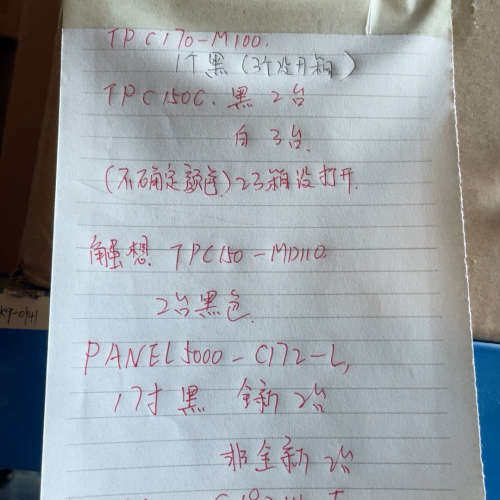 TPC170-M100.
1个黑（3个没开箱）
TPC150C. 黑 2台
白 3台.
(不确定颜色.) 23箱没打开.
触想 TPC150-MD110.
2台黑色.
PANEL5000-C172-L,
17寸黑 全新 2台
非全新 2台